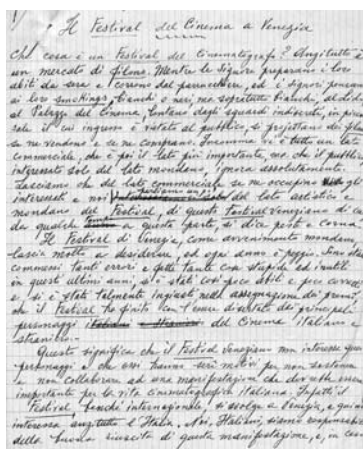 Il Festival del Cinema a Venezia
Che cosa è un Festival del Cinematografo? Anzitutto è
un mercato di films. Mentre le Signore preparano i loro
abiti da sera e corrono dal parrucchiere, ed i signori pensano
ai loro smokings, bianchi o neri, ma sopratutto bianchi, al
al Palazzo del Cinema, lontano dagli sguardi indiscreti, in
sale il cui ingresso è vietato al pubblico, si proiettano dei films
se ne vendono e se ne comprano. Insomma vi è tutto un lato
commerciale, che è poi il lato più importante, ma che il pubblico
interessato solo del lato mondano, ignora assolutamente.
Lasciamo che del lato commerciale se ne occupino gli
interessati e noi parliamo del lato artistico e
mondano del Festival, di questo Festival veneziano di cui
da qualche tempo a questa parte, si dice peste e corna
Il Festival di Venezia, come avvenimento mondano
lascia molto a desiderare, ed ogni anno è peggio. Sono stati
commessi tanti errori e fatte tante cose stupide ed inutili
in questi ultimi anni, si è stati così poco abili e poco
e si è stati talmente ingiusti nella assegnazione dei premi
che il Festival ha finito con l'essere disertato dai principali
personaggi del Cinema italiano e
straniero.
Questo significa che il Festival veneziano non interessa questi
personaggi e che essi hanno seri motivi per non sostenere
e non collaborare ad una manifestazione che dovrebbe essere
importante per la vita cinematografica italiana. Infatti il
Festival, benché internazionale, si svolge a Venezia, e quindi
interessa anzitutto l'Italia. Noi, Italiani, siamo responsabili
della buona riuscita di questa manifestazione, e, in caso